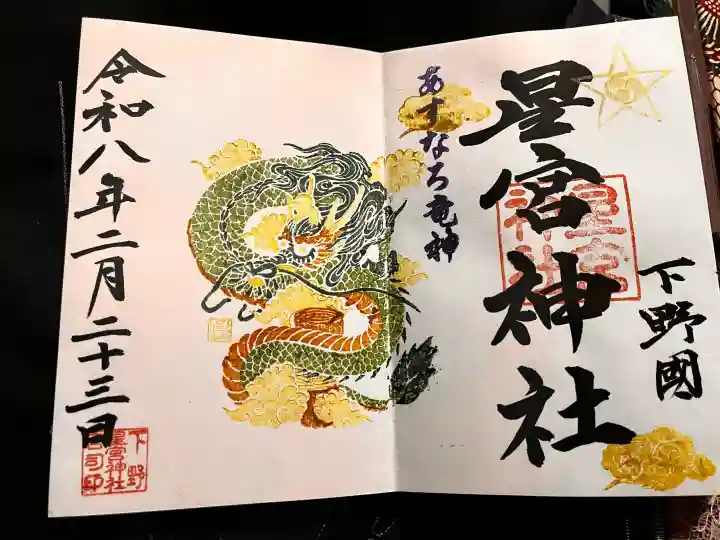 下野國
星宮神社
星宮神社
あすなろ竜神
令和八年二月二十三日
下野
星宮神社
宮司印